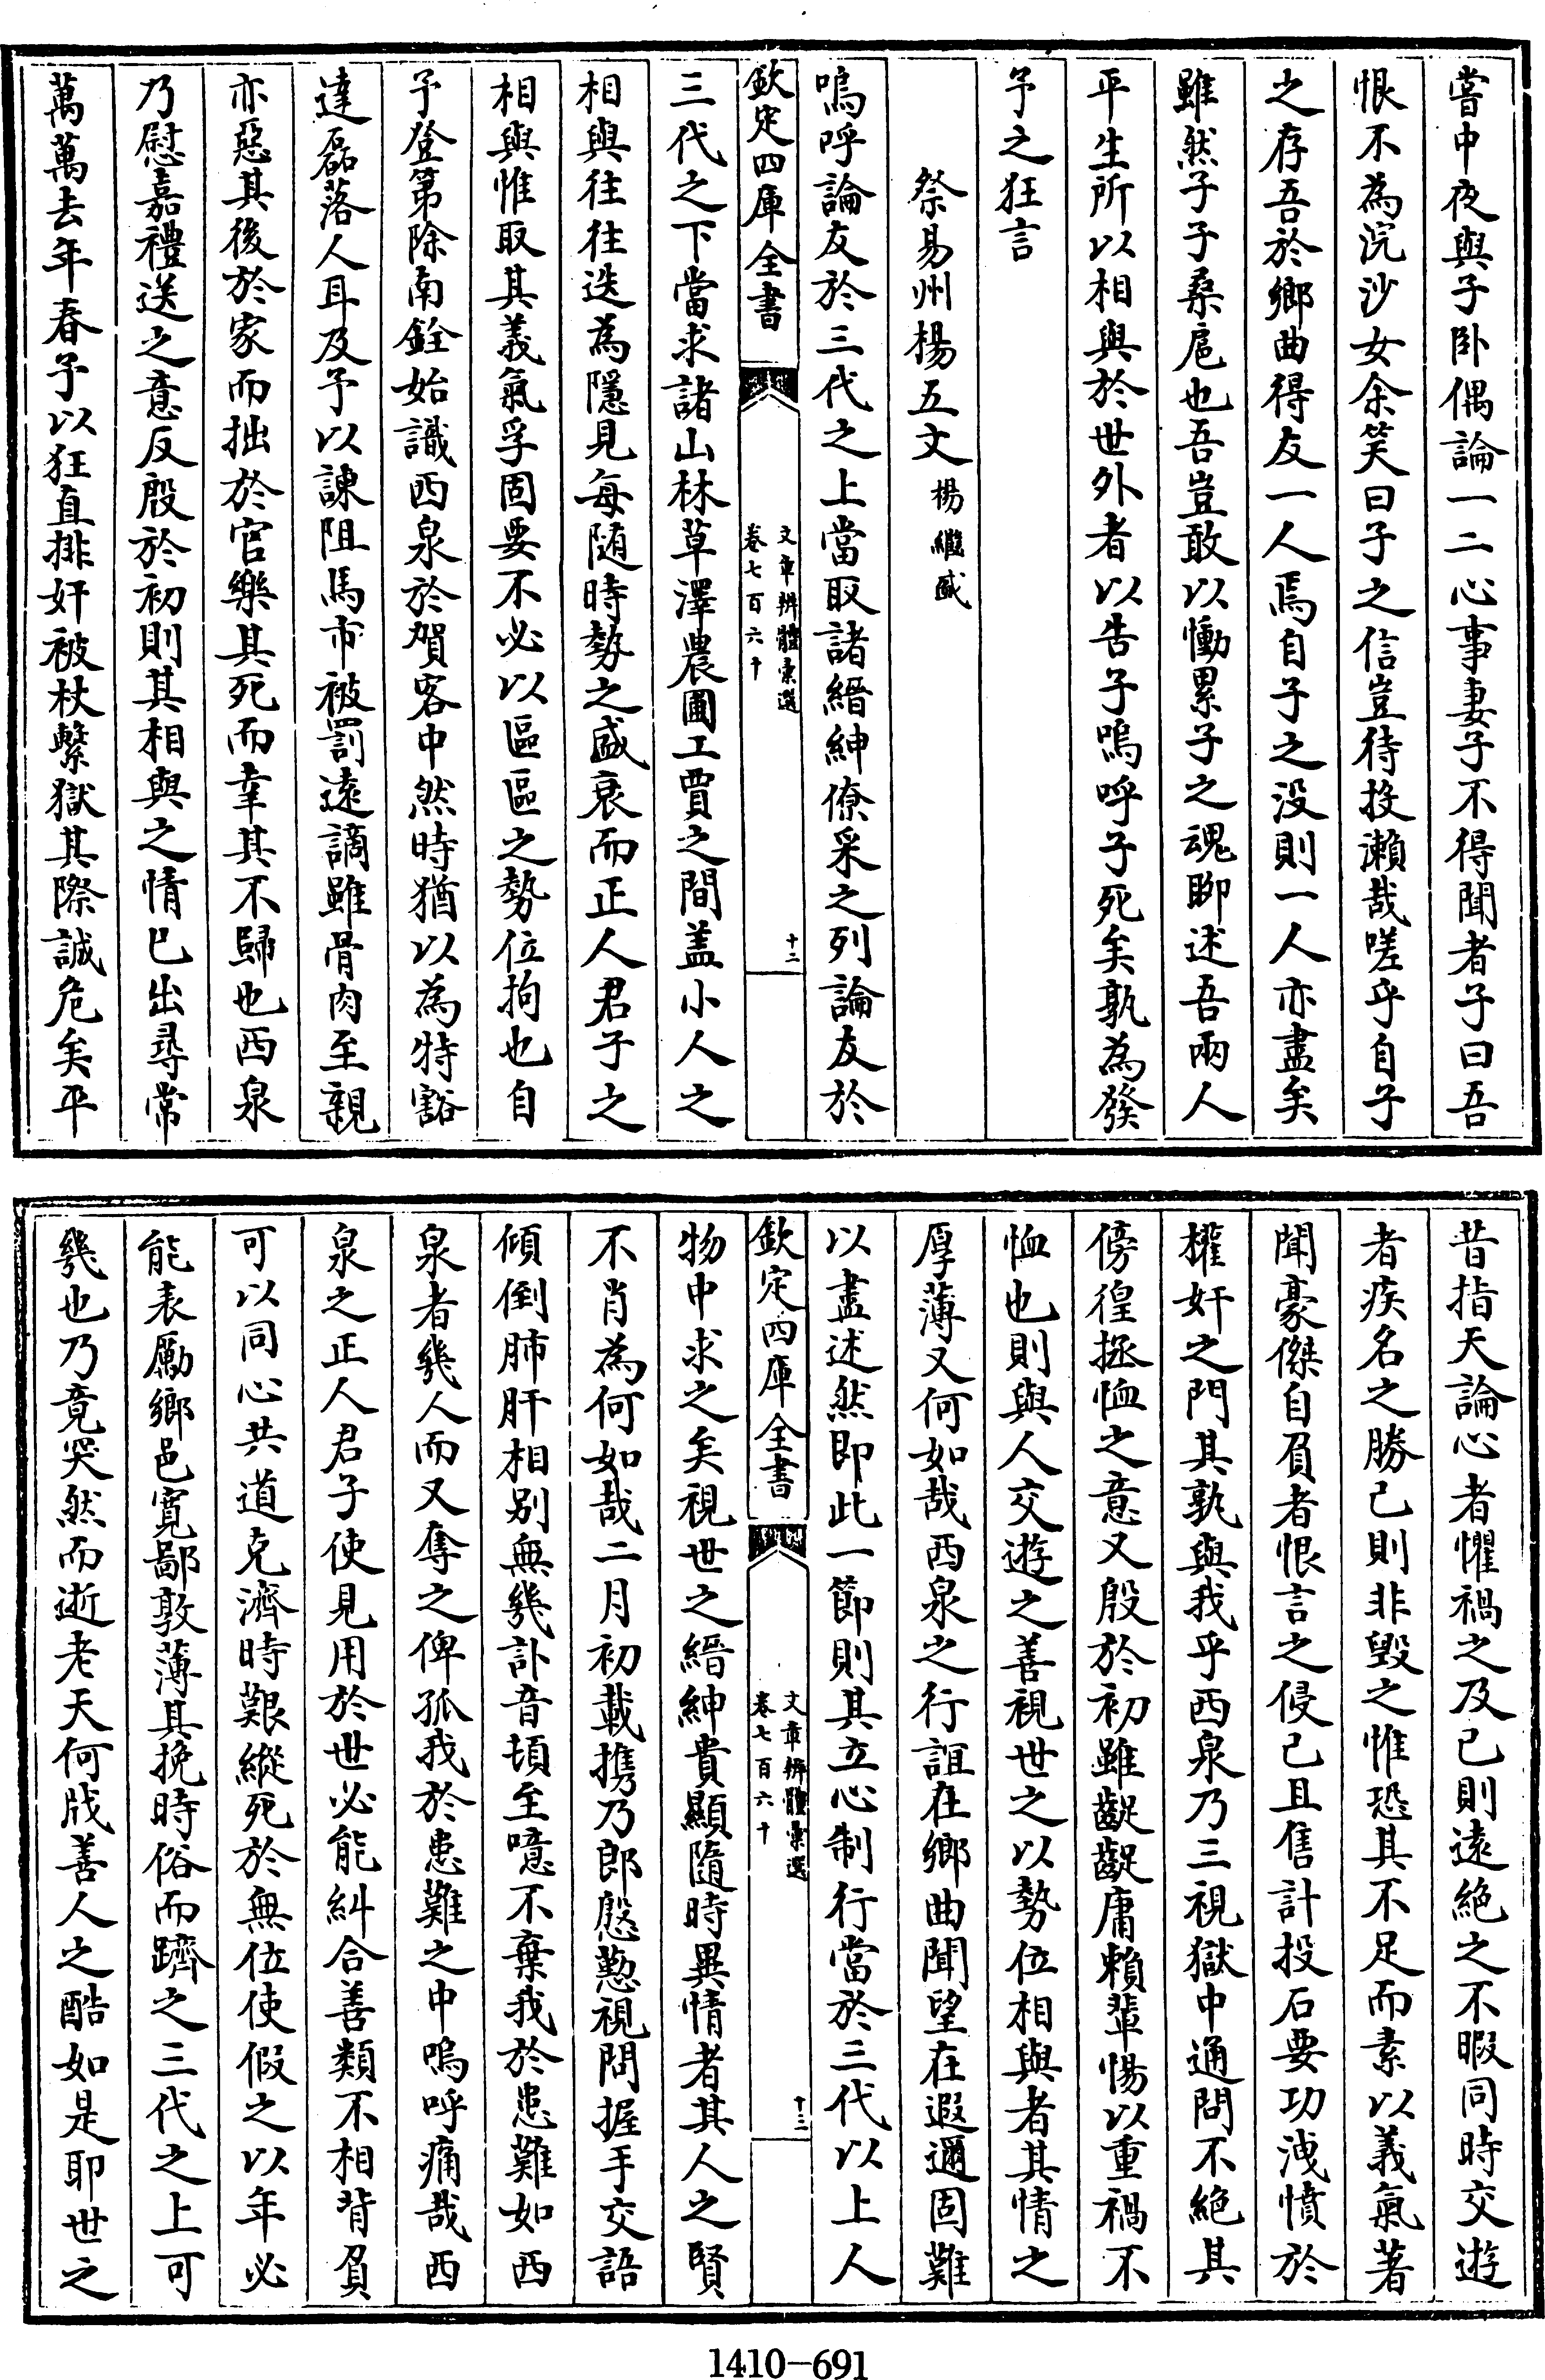 嘗中夜與子卧偶論一二心事妻子不得聞者子曰吾
恨不為浣沙女余笑曰子之信豈待投瀨哉嗟乎自子
之存吾於鄉曲得友一人焉自子之没則一人亦盡矣
雖然子子桑扈也吾豈敢以慟累子之魂聊述吾兩人
平生所以相與於世外者以告子嗚呼子死矣孰為發
予之狂言
祭易州楊五文 楊繼盛
嗚呼論友於三代之上當取諸縉紳僚采之列論友於
欽定四庫全書
文章辨體彙選
卷七百六十
十二
三代之下當求諸山林草澤農圃工賈之間盖小人之
相與往往迭為隱見每随時勢之盛衰而正人君子之
相與惟取其義氣孚固要不必以區區之勢位拘也自
予登第除南銓始識西泉於賀客中然時猶以為特豁
達磊落人耳及予以諫阻馬市被罰遠謫雖骨肉至親
亦惡其後於家而拙於官樂其死而幸其不歸也西泉
乃慰嘉禮送之意反殷於初則其相與之情已出尋常
萬萬去年春予以狂直排奸被杖繫獄其際誠危矣平
昔指天論心者懼禍之及己則遠絶之不暇同時交遊
者疾名之勝己則非毀之惟恐其不足而素以義氣著
聞豪傑自負者恨言之侵己且售計投石要功洩憤於
權奸之門其孰與我乎西泉乃三視獄中通問不絶其
傍徨拯恤之意又殷於初雖齪齪庸賴輩惕以重禍不
恤也則與人交遊之善視世之以勢位相與者其情之
厚薄又何如哉西泉之行誼在鄉曲聞望在遐邇固難
以盡述然即此一節則其立心制行當於三代以上人
欽定四庫全書
文章辨體彙選
卷七百六十
十三
物中求之矣視世之縉紳貴顯隨時異情者其人之賢
不肖為何如哉二月初載携乃郎慇懃視問握手交語
傾倒肺肝相别無幾訃音頓至噫不棄我於患難如西
泉者幾人而又奪之俾孤我於患難之中嗚呼痛哉西
泉之正人君子使見用於世必能糾合善類不相背負
可以同心共道克濟時艱縱死於無位使假之以年必
能表勵鄉邑寬鄙敦薄其挽時俗而躋之三代之上可
幾也乃竟哭然而逝老天何戕善人之酷如是耶世之
1410-691